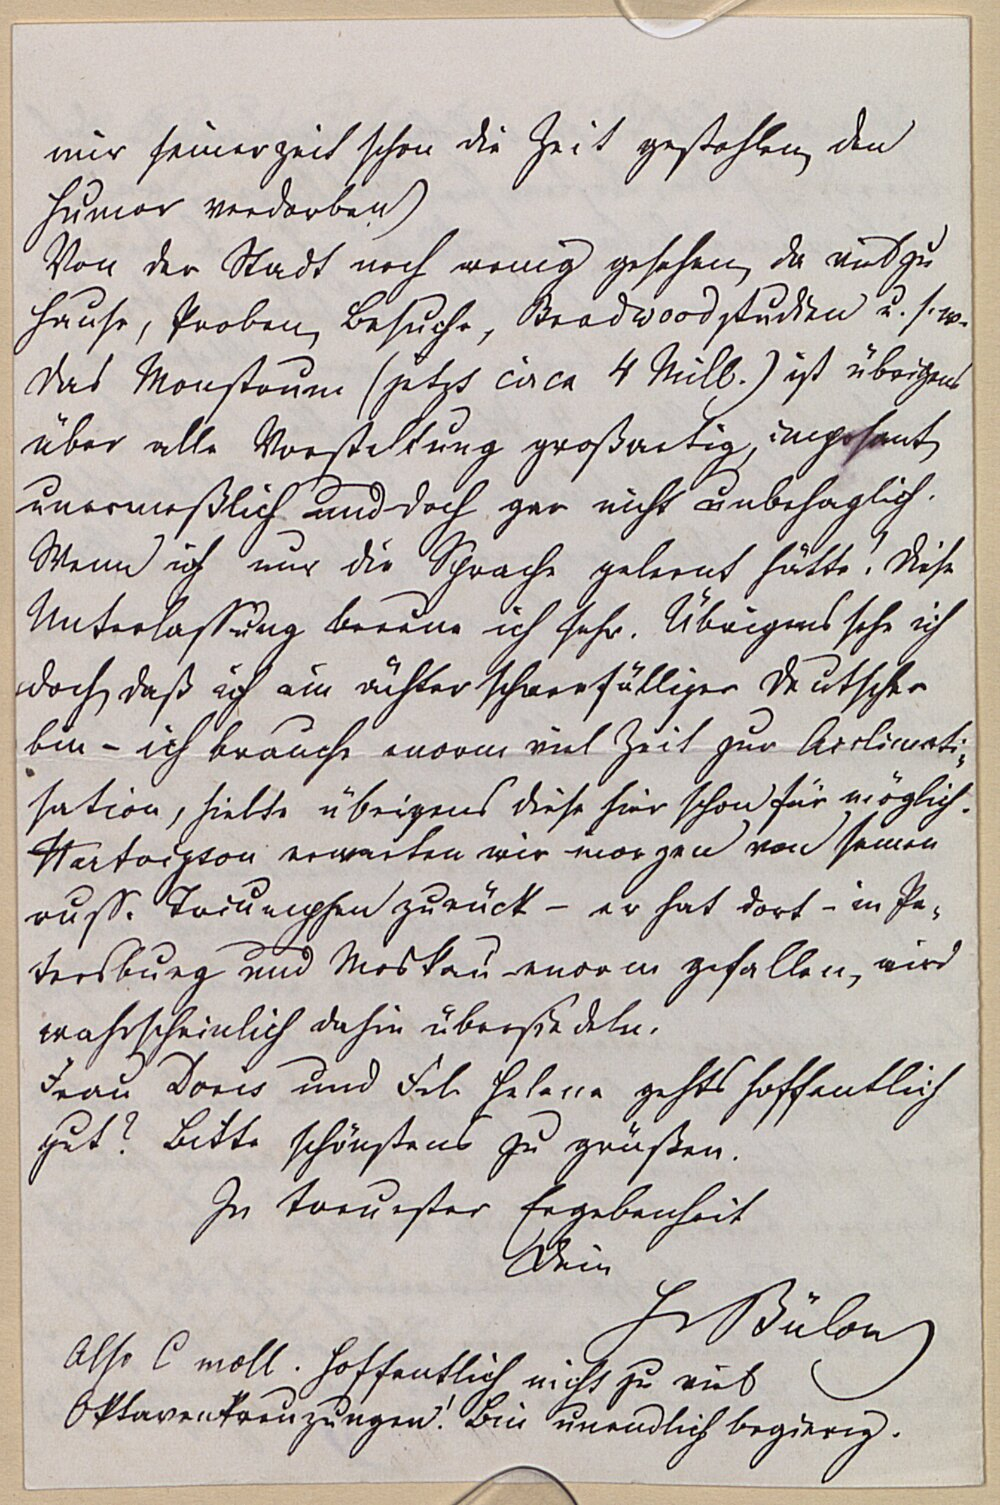 mir seinerzeit schon die Zeit gestohlen, den
Humor verdorben)
Von der Stadt noch wenig gesehen, da viel zu
Hause, Proben, Besuche, Broadwoodstudien u. s. w.
Das Monstrum (jetzt circa 4 Mill.) ist übrigens
über alle Vorstellung großartig, imposant,
unermeßlich und doch gar nicht unbehaglich.
Wenn ich nur die Sprache gelernt hätte! Diese
Unterlassung bereue ich sehr. Übrigens sehe ich
doch, daß ich ein ächter schwerfälliger Deutscher
bin – ich brauche enorm viel Zeit zur Acclimati-
sation, hielte übrigens diese hier schon für möglich.
Hartvigson erwarten wir morgen von seinen
russ. Triumphen zurück – er hat dort – in Pe-
tersburg und Moskau enorm gefallen, wird
wahrscheinlich dahin übersiedeln.
Frau Doris und Frl. Helene gehts hoffentlich
gut? Bitte schönstens zu grüßen.
In treuester Ergebenheit
Dein
Hv Bülow
Also C moll. Hoffentlich nicht zu viel
Oktavenkreuzungen! Bin unendlich begierig.